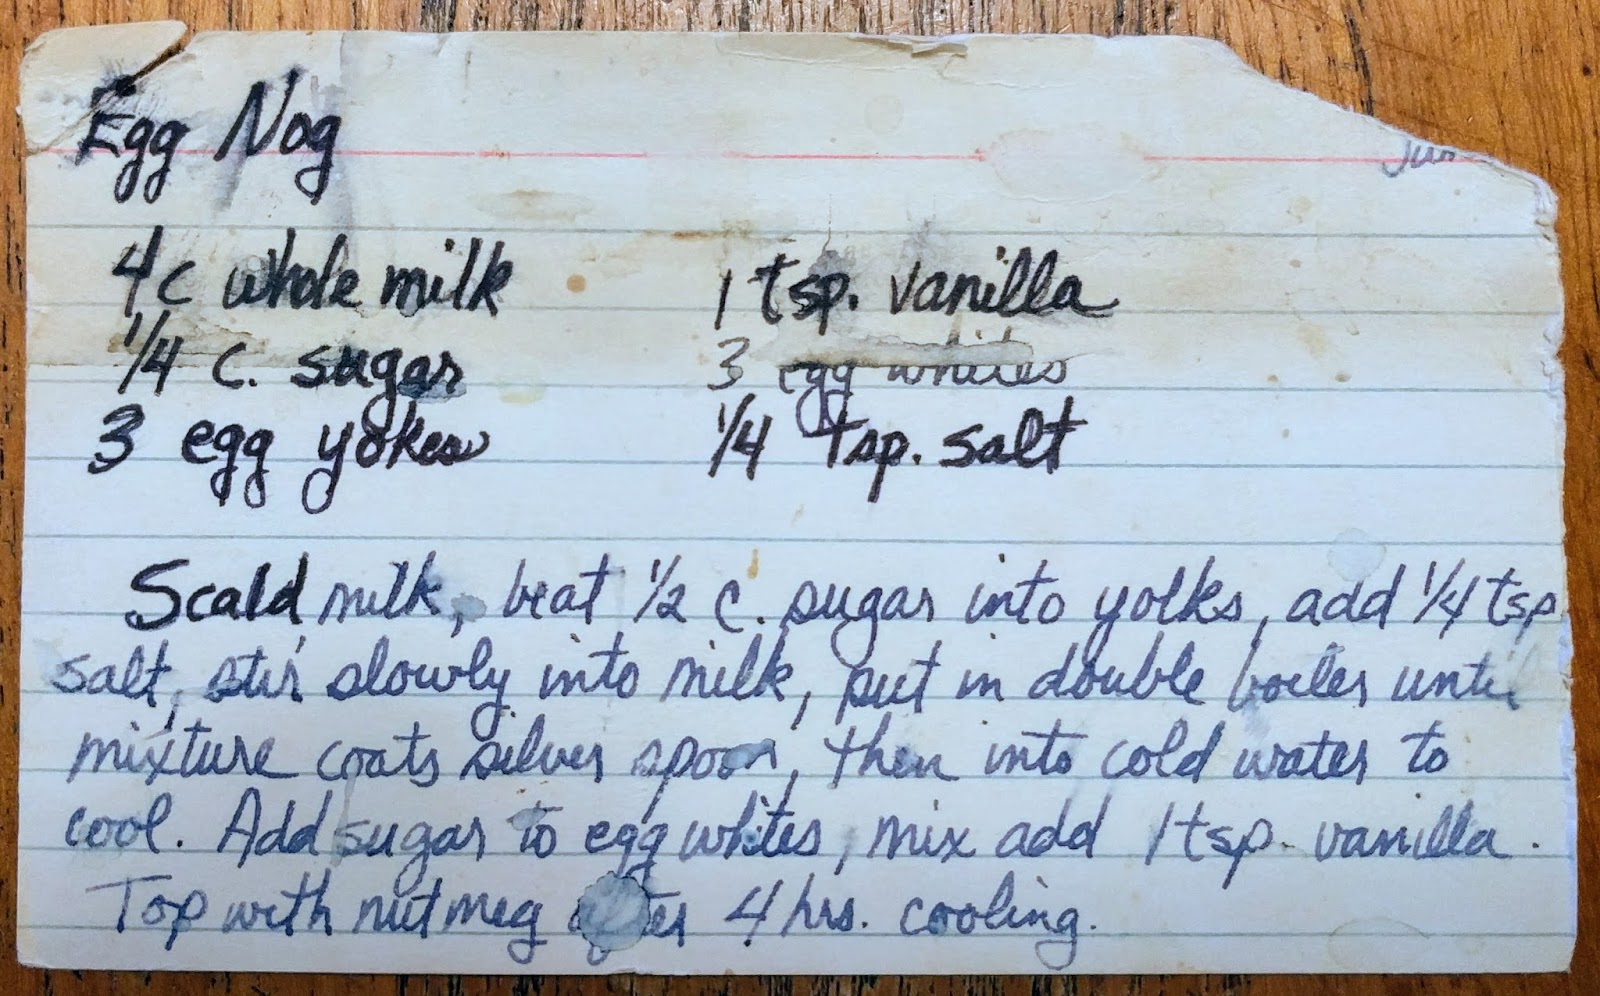 Egg Nog
4 c whole milk
1/4 c. sugar
3 egg yokes
1 tsp. vanilla
3 egg whites
1/4 tsp. salt
Scald milk, beat 1/2 c. sugar into yolks, add 1/4 tsp
salt, stir slowly into milk, put in double boiler until
mixture coats silver spoon, then into cold water to
cool. Add sugar to egg whites, mix add 1 tsp. vanilla.
Top with nutmeg after 4 hrs. cooling.